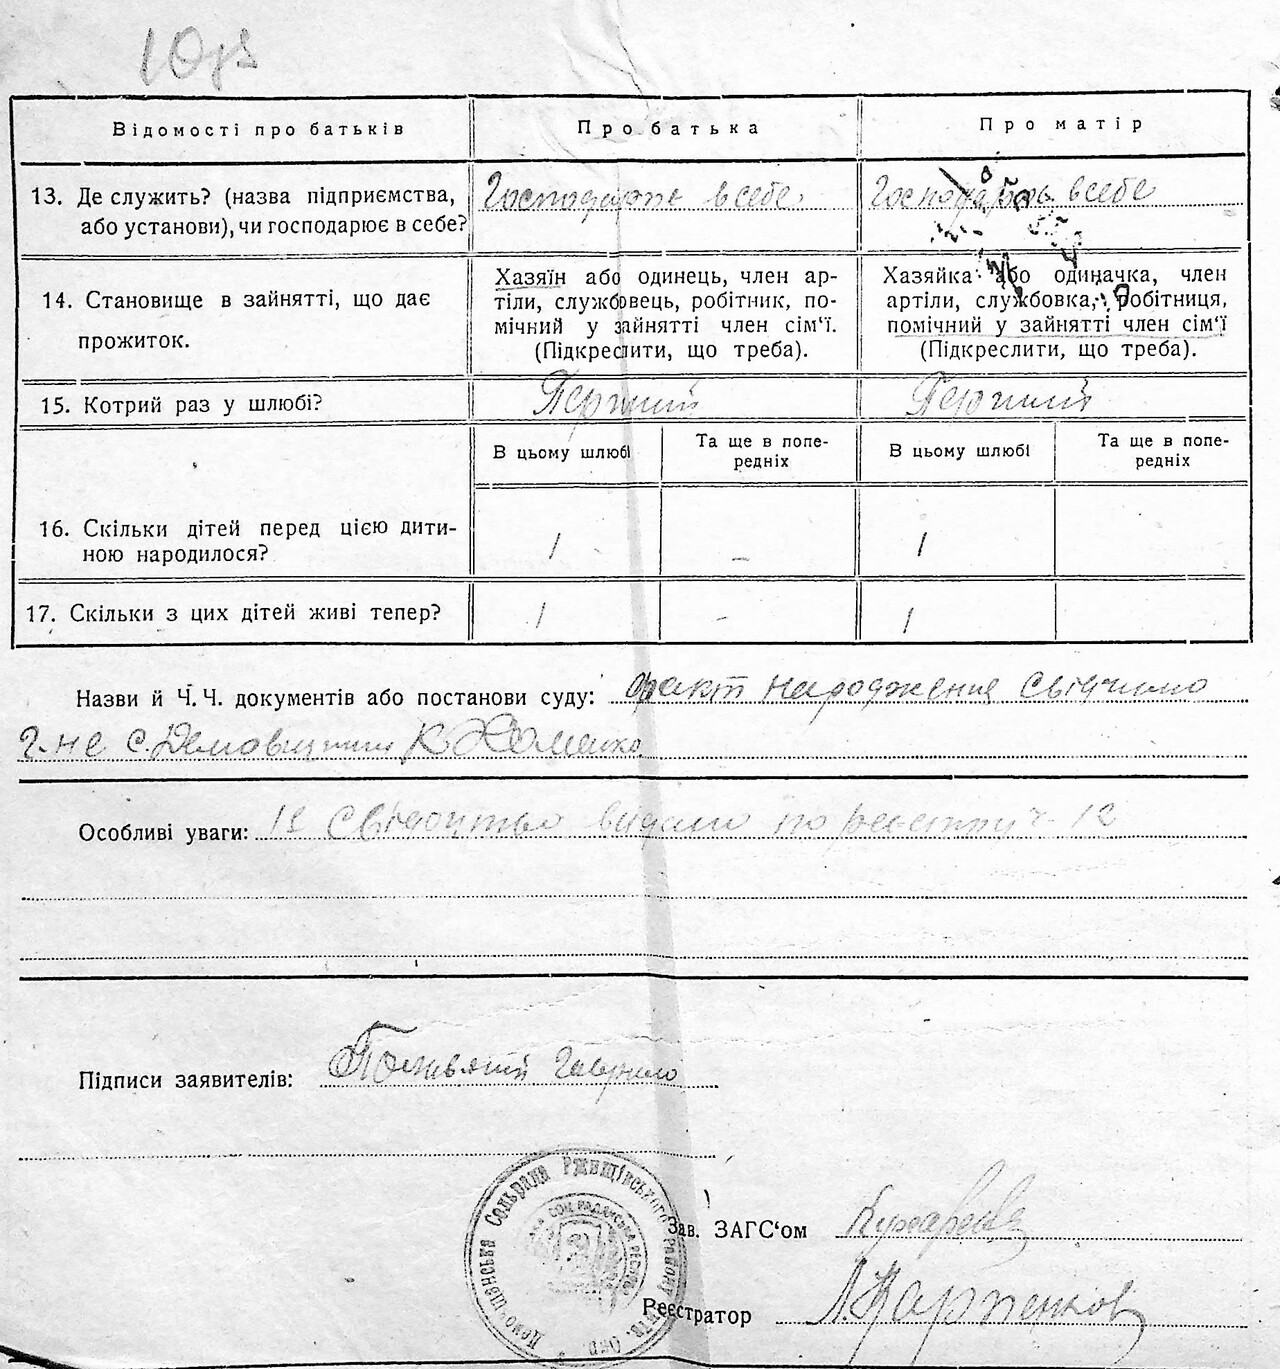 Відомості про батьків
Про батька
Про матір
13. Де служить? (назва підприємства,
або установи), чи господарює в себе?
Господарить в себе
Господарить в себе
14. Становище в зайнятті, що дає
прожиток.
Хазяїн або одинець, член ар-
тіли, службовець, робітник, по-
мічний у зайнятті член сім'ї.
(Підкреслити, що треба).
Хазяйка або одиначка, член
артіли, службовка, робітниця,
помічний у зайнятті член сім'ї
(Підкреслити, що треба).
15. Котрий раз у шлюбі?
Перший
Перший
В цьому шлюбі
Та ще в попе-
редніх
В цьому шлюбі
Та ще в попе-
редніх
16. Скільки дітей перед цією дити-
ною народилося?
1
–
1
17. Скільки з цих дітей живі тепер?
1
-
1
Назви й Ч. Ч. документів або постанови суду: факт народження свідчимо
с. К Хоменко
Особливі уваги: Свідоцтво видано по реєстру ч 12
Підписи заявителів: Гаврило
Сольрада Ржищівського району
Зав. ЗАГС'ом
Реєстратор Карпенков